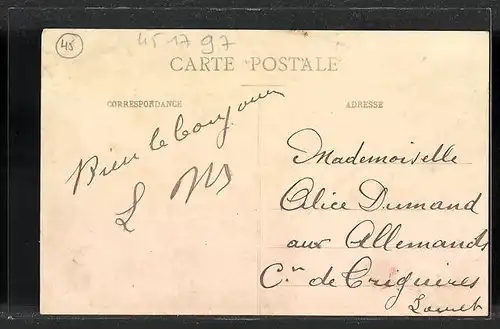 45
45 17 97
CARTE POSTALE
CORRESPONDANCE
ADRESSE
Bien le bonjour
L M
Mademoiselle
Alice Dumand
aux Allemands
Cne de Triguères
Loiret